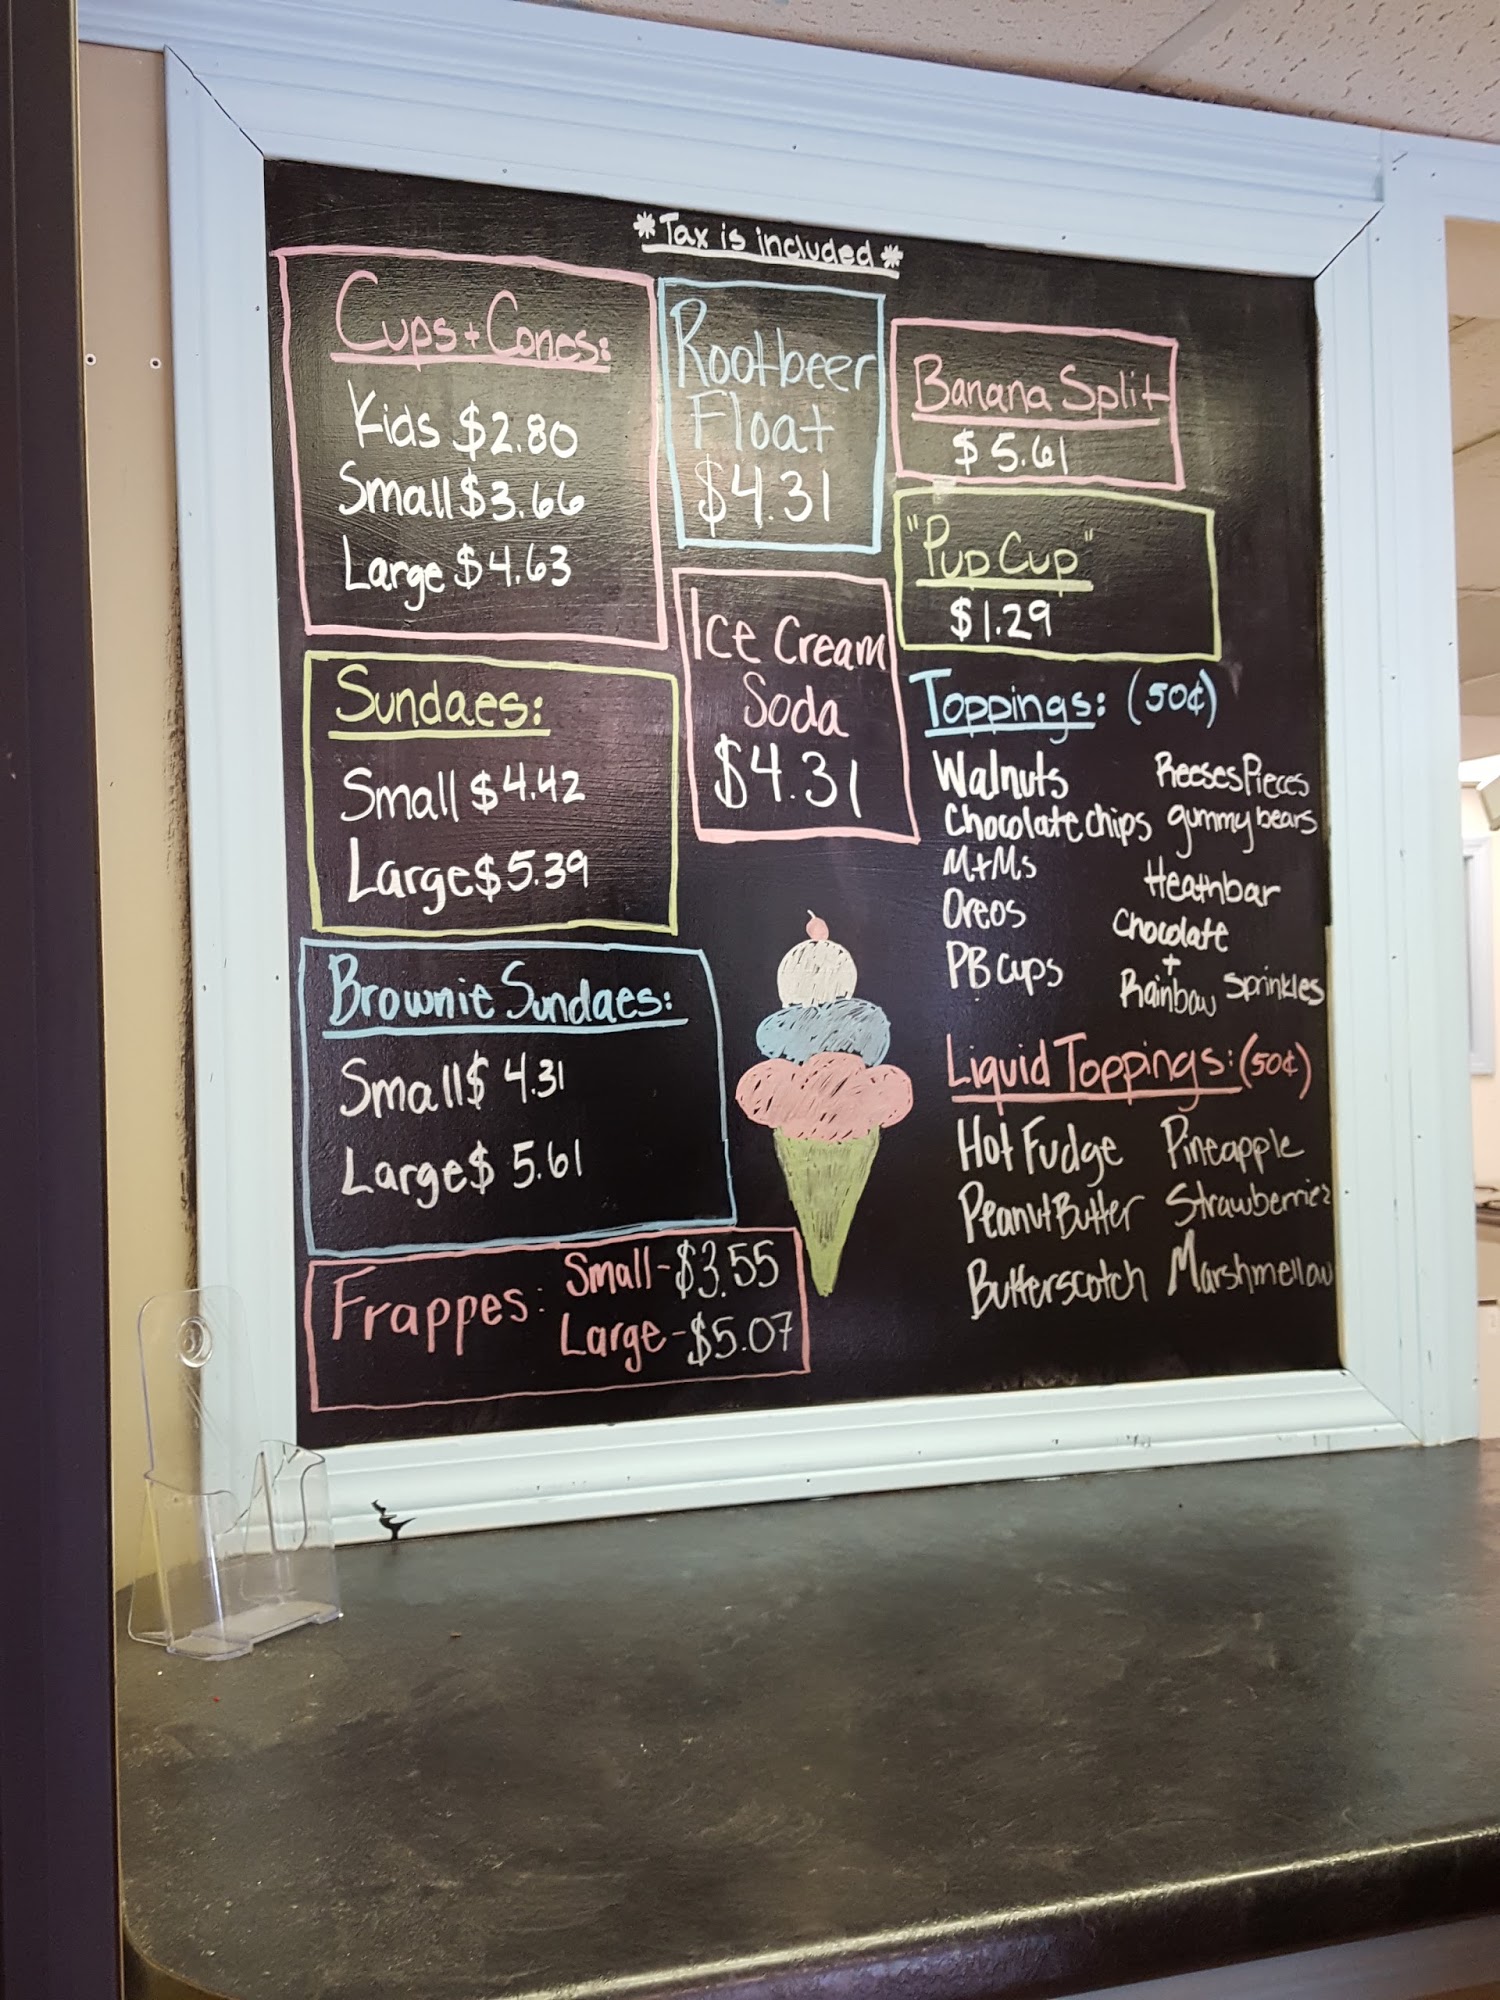 *Tax is included*
Cups + Cones:
Kids $2.80
Small $3.66
Large $4.63
Sundaes:
Small $4.42
Large $5.39
Brownie Sundaes:
Small $ 4.31
Large $ 5.61
Frappes: Small - $3.55
Large - $5.07
Rootbeer
Float
$4.31
Ice Cream
Soda
$4.31
Banana Split
$5.61
"Pup Cup"
$1.29
Toppings: (50¢)
Walnuts
Chocolate chips
M+Ms
Oreos
PB cups
Reeses Pieces
gummy bears
Heathbar
Chocolate
+
Rainbow Sprinkles
Liquid Toppings: (50¢)
Hot Fudge Pineapple
Peanut Butter Strawberries
Butterscotch Marshmellow